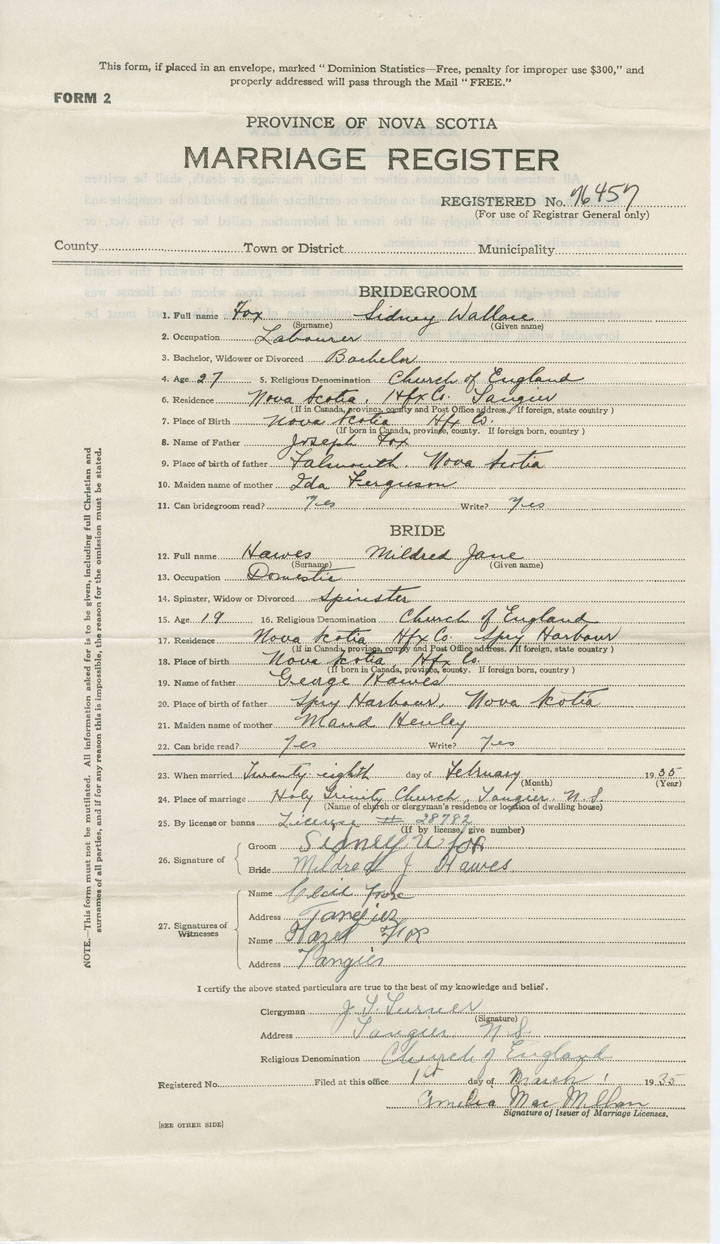 This form, if placed in an envelope, marked "Dominion Statistics—Free, penalty for improper use $300," and
properly addressed will pass through the Mail "FREE."
FORM 2
PROVINCE OF NOVA SCOTIA
MARRIAGE REGISTER
REGISTERED No. 76457
(For use of Registrar General only)
County Town or District Municipality
BRIDEGROOM
1. Full name Fox Sidney Wallace
(Surname) (Given name)
2. Occupation Labourer
3. Bachelor, Widower or Divorced Bachelor
4. Age 27 5. Religious Denomination Church of England
6. Residence Nova Scotia, Hfx Co. Tangier
(If in Canada, province, county and Post Office address. If foreign, state country)
7. Place of Birth Nova Scotia Hfx Co.
(If born in Canada, province, county. If foreign born, country)
8. Name of Father Joseph Fox
9. Place of birth of father Falmouth, Nova Scotia
10. Maiden name of mother Ida Ferguson
11. Can bridegroom read? Yes Write? Yes
BRIDE
12. Full name Hawes Mildred Jane
(Surname) (Given name)
13. Occupation Domestic
14. Spinster, Widow or Divorced Spinster
15. Age 19 16. Religious Denomination Church of England
17. Residence Nova Scotia Hfx Co. Spry Harbour
(If in Canada, province, county and Post Office address. If foreign, state country)
18. Place of birth Nova Scotia, Hfx Co.
(If born in Canada, province, county. If foreign born, country)
19. Name of father George Hawes
20. Place of birth of father Spry Harbour, Nova Scotia
21. Maiden name of mother Maud Henley
22. Can bride read? Yes Write? Yes
23. When married Twenty eighth day of February 1935
(Month) (Year)
24. Place of marriage Holy Trinity Church, Tangier, N.S.
(Name of church or clergyman's residence or location of dwelling house)
25. By license or banns License # 28782
(If by license, give number)
26. Signature of
Groom Sidney W Fox
Bride Mildred J Hawes
27. Signatures of Witnesses
Name Cecil
Address Tangier
Name Hazel Fox
Address Tangier
I certify the above stated particulars are true to the best of my knowledge and belief.
Clergyman J. T. Turner
(Signature)
Address Tangier, N.S.
Religious Denomination Church of England
Registered No. Filed at this office 1st day of March 1935
Amelia Mac Millan
Signature of Issuer of Marriage Licenses.
[SEE OTHER SIDE]
NOTE.—This form must not be mutilated. All information asked for is to be given, including full Christian and
surnames of all parties, and if for any reason this is impossible, the reason for the omission must be stated.